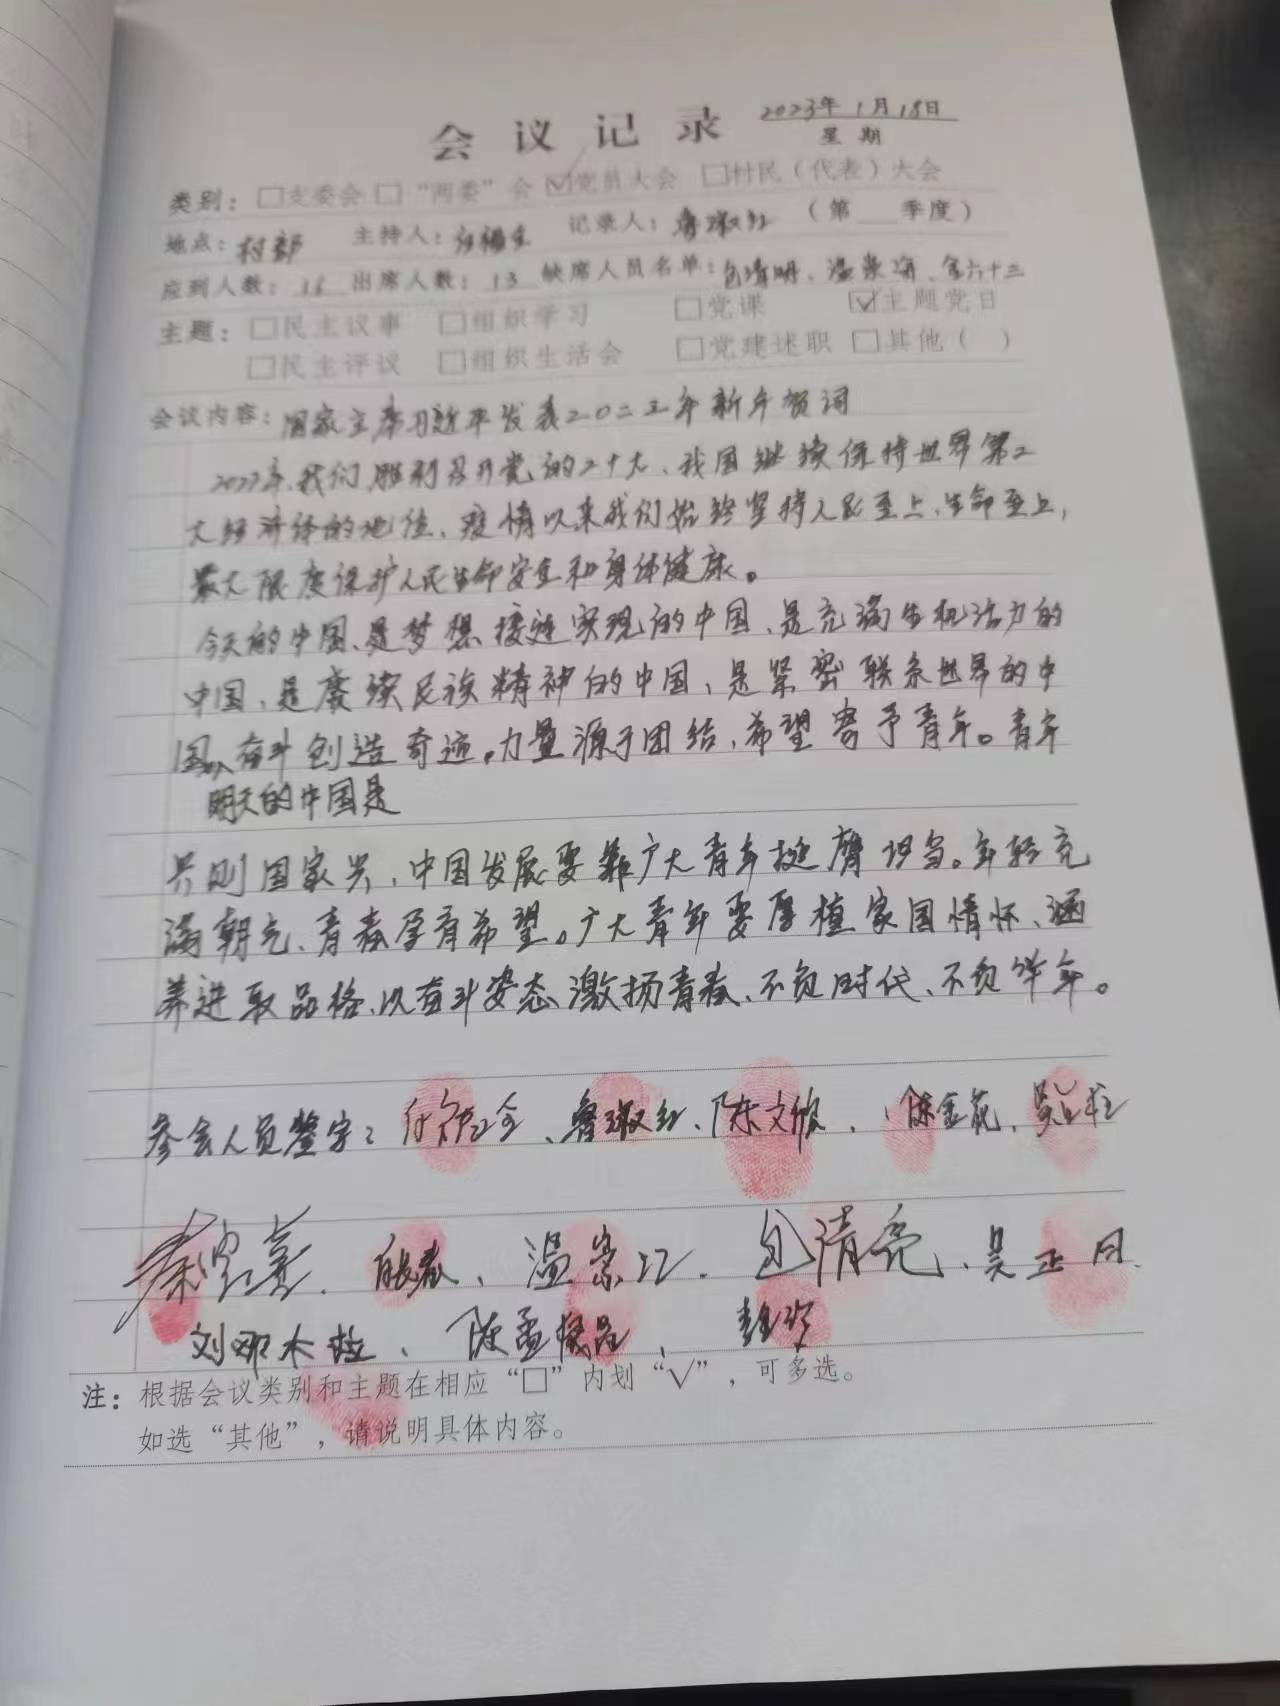 会议记录
2023年1月18日
星期
类别：□支委会 □“两委”会 ☑党员大会 □村民（代表）大会
地点：村部 主持人： 记录人：鲁淑红 （第 季度）
应到人数：16 出席人数：13 缺席人员名单：包清明、温崇海、金六十三
主题：□民主议事 □组织学习 □党课 ☑主题党日
□民主评议 □组织生活会 □党建述职 □其他（ ）
会议内容：国家主席习近平发表二〇二三年新年贺词
2022年、我们胜利召开党的二十大、我国继续保持世界第二
大经济体的地位、疫情以来我们始终坚持人民至上、生命至上，
最大限度保护人民生命安全和身体健康。
今天的中国、是梦想接连实现的中国、是充满生机活力的
中国、是赓续民族精神的中国、是紧密联系世界的中
国。奋斗创造奇迹。力量源于团结、希望寄予青年。青年
明天的中国是
兴则国家兴、中国发展要靠广大青年挺膺担当。年轻充
满朝气、青春孕育希望。广大青年要厚植家国情怀、涵
养进取品格、以奋斗姿态激扬青春、不负时代、不负华年。
参会人员签字： 、鲁淑红、陈文欣、陈金花、
温崇江、包清亮、吴正月、
刘那木拉、陈孟根
注：根据会议类别和主题在相应“□”内划“√”，可多选。
如选“其他”，请说明具体内容。